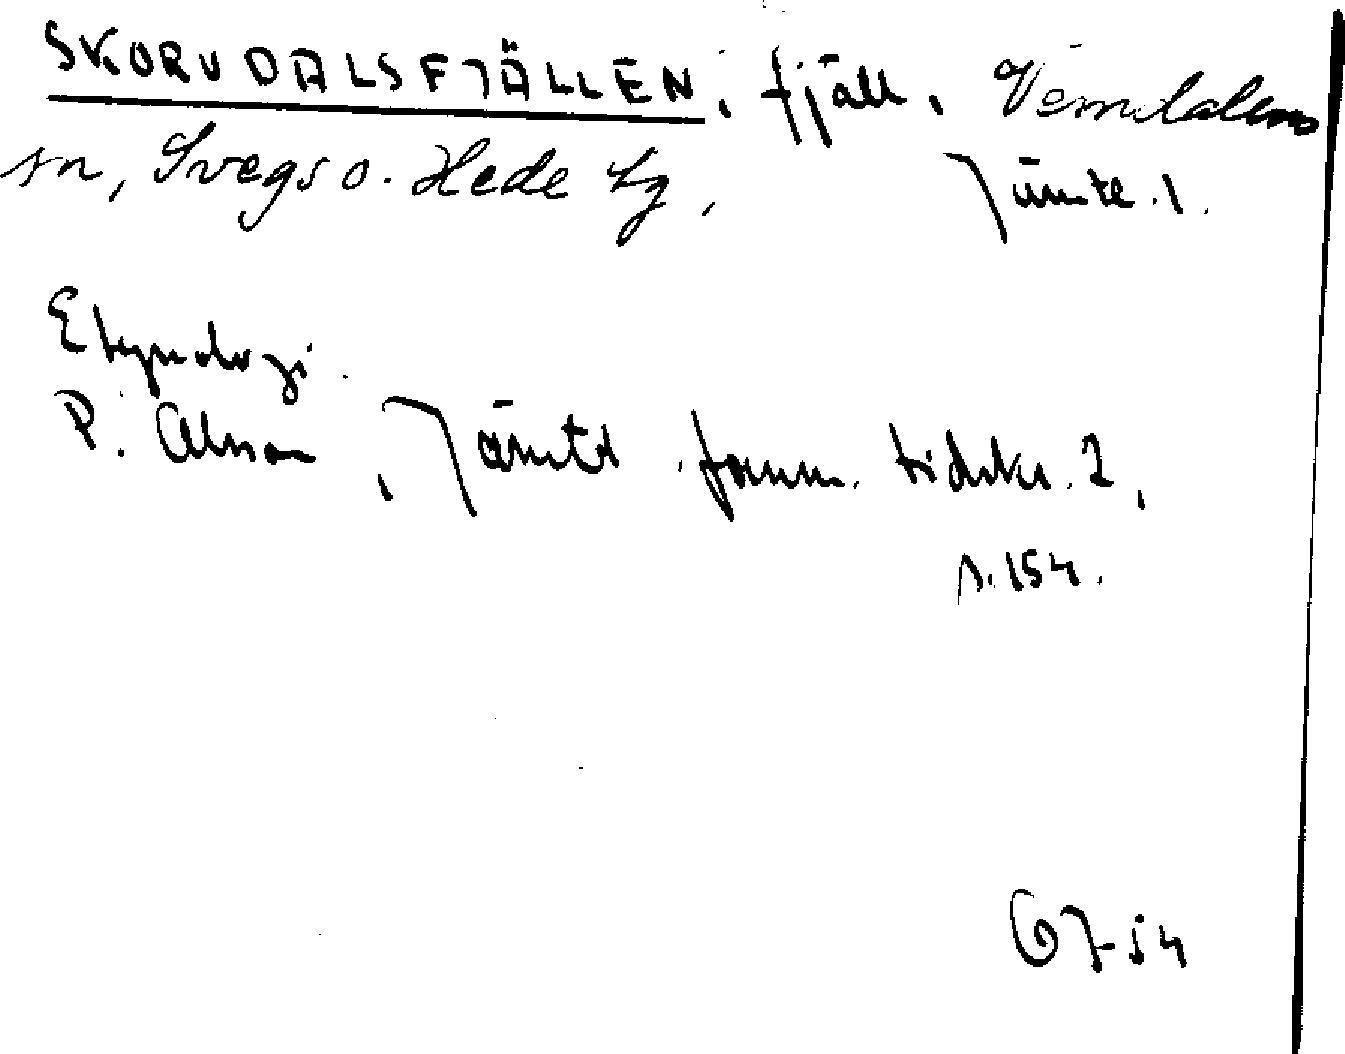 SKORVDALSFJÄLLEN, fjäll, Vemdalens
sn, Svegs o. Hede tg, Jämtl. l.
Etymologi.
P. Olsson, Jämtl. fornm. tidskr. 2,
s. 154.
67-54